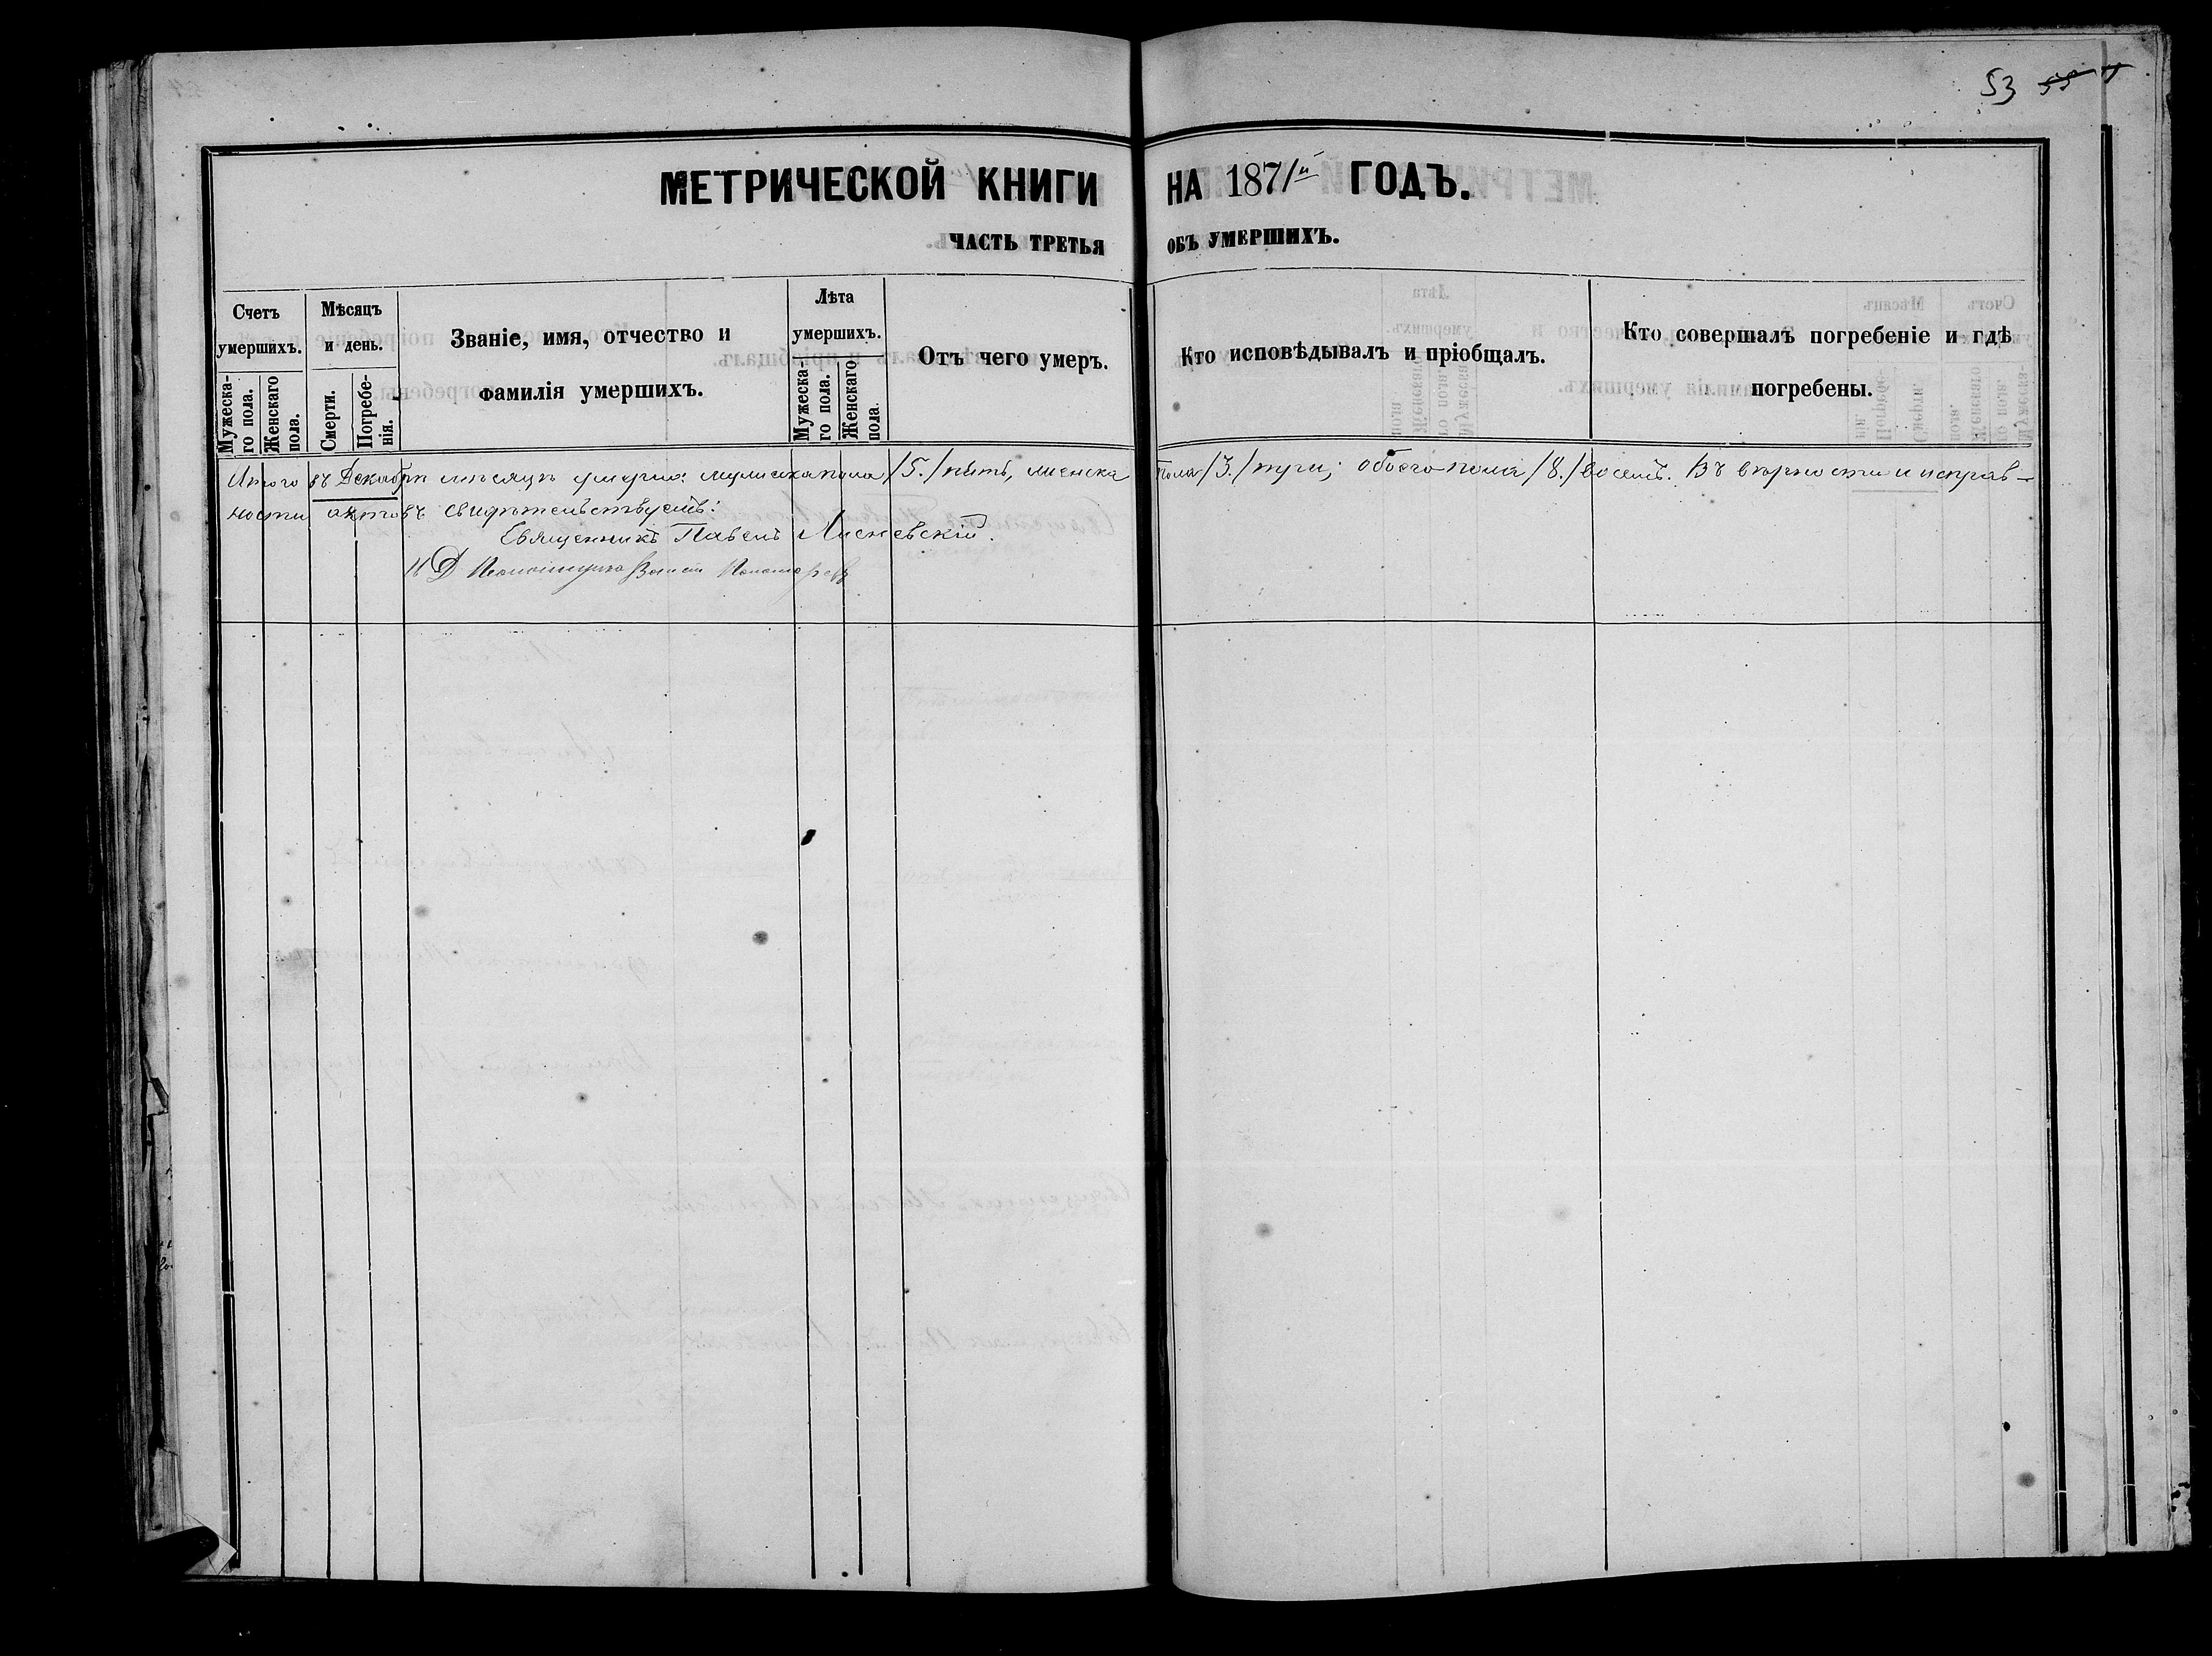 53 55
МЕТРИЧЕСКОЙ КНИГИ НА 1871й ГОДЪ.
ЧАСТЬ ТРЕТЬЯ ОБЪ УМЕРШИХЪ.
Счетъ умершихъ.
Мужескаго пола.
Женскаго пола.
Мѣсяцъ и день.
Смерти.
Погребенія.
Званіе, имя, отчество и
фамилія умершихъ.
Лѣта умершихъ.
Мужескаго пола.
Женскаго пола.
Отъ чего умеръ.
Кто исповѣдывалъ и пріобщалъ.
Кто совершалъ погребеніе и гдѣ
погребены.
Итого въ Декабрѣ мѣсяцѣ умерло: мужеска пола /5./ пять, женска пола /3./ три; обоего пола /8./ восемь. Въ вѣрности и исправ-
ности актовъ свидѣтельствуемъ:
Священникъ Павелъ Лисневскій.